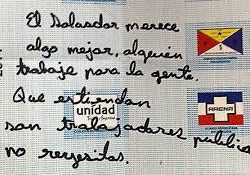 El Salvador merece
algo mejor, alguien
trabaje para la gente.
Que entiendan
unidad
ARENA
son trabajadores publico
no reegesitas.